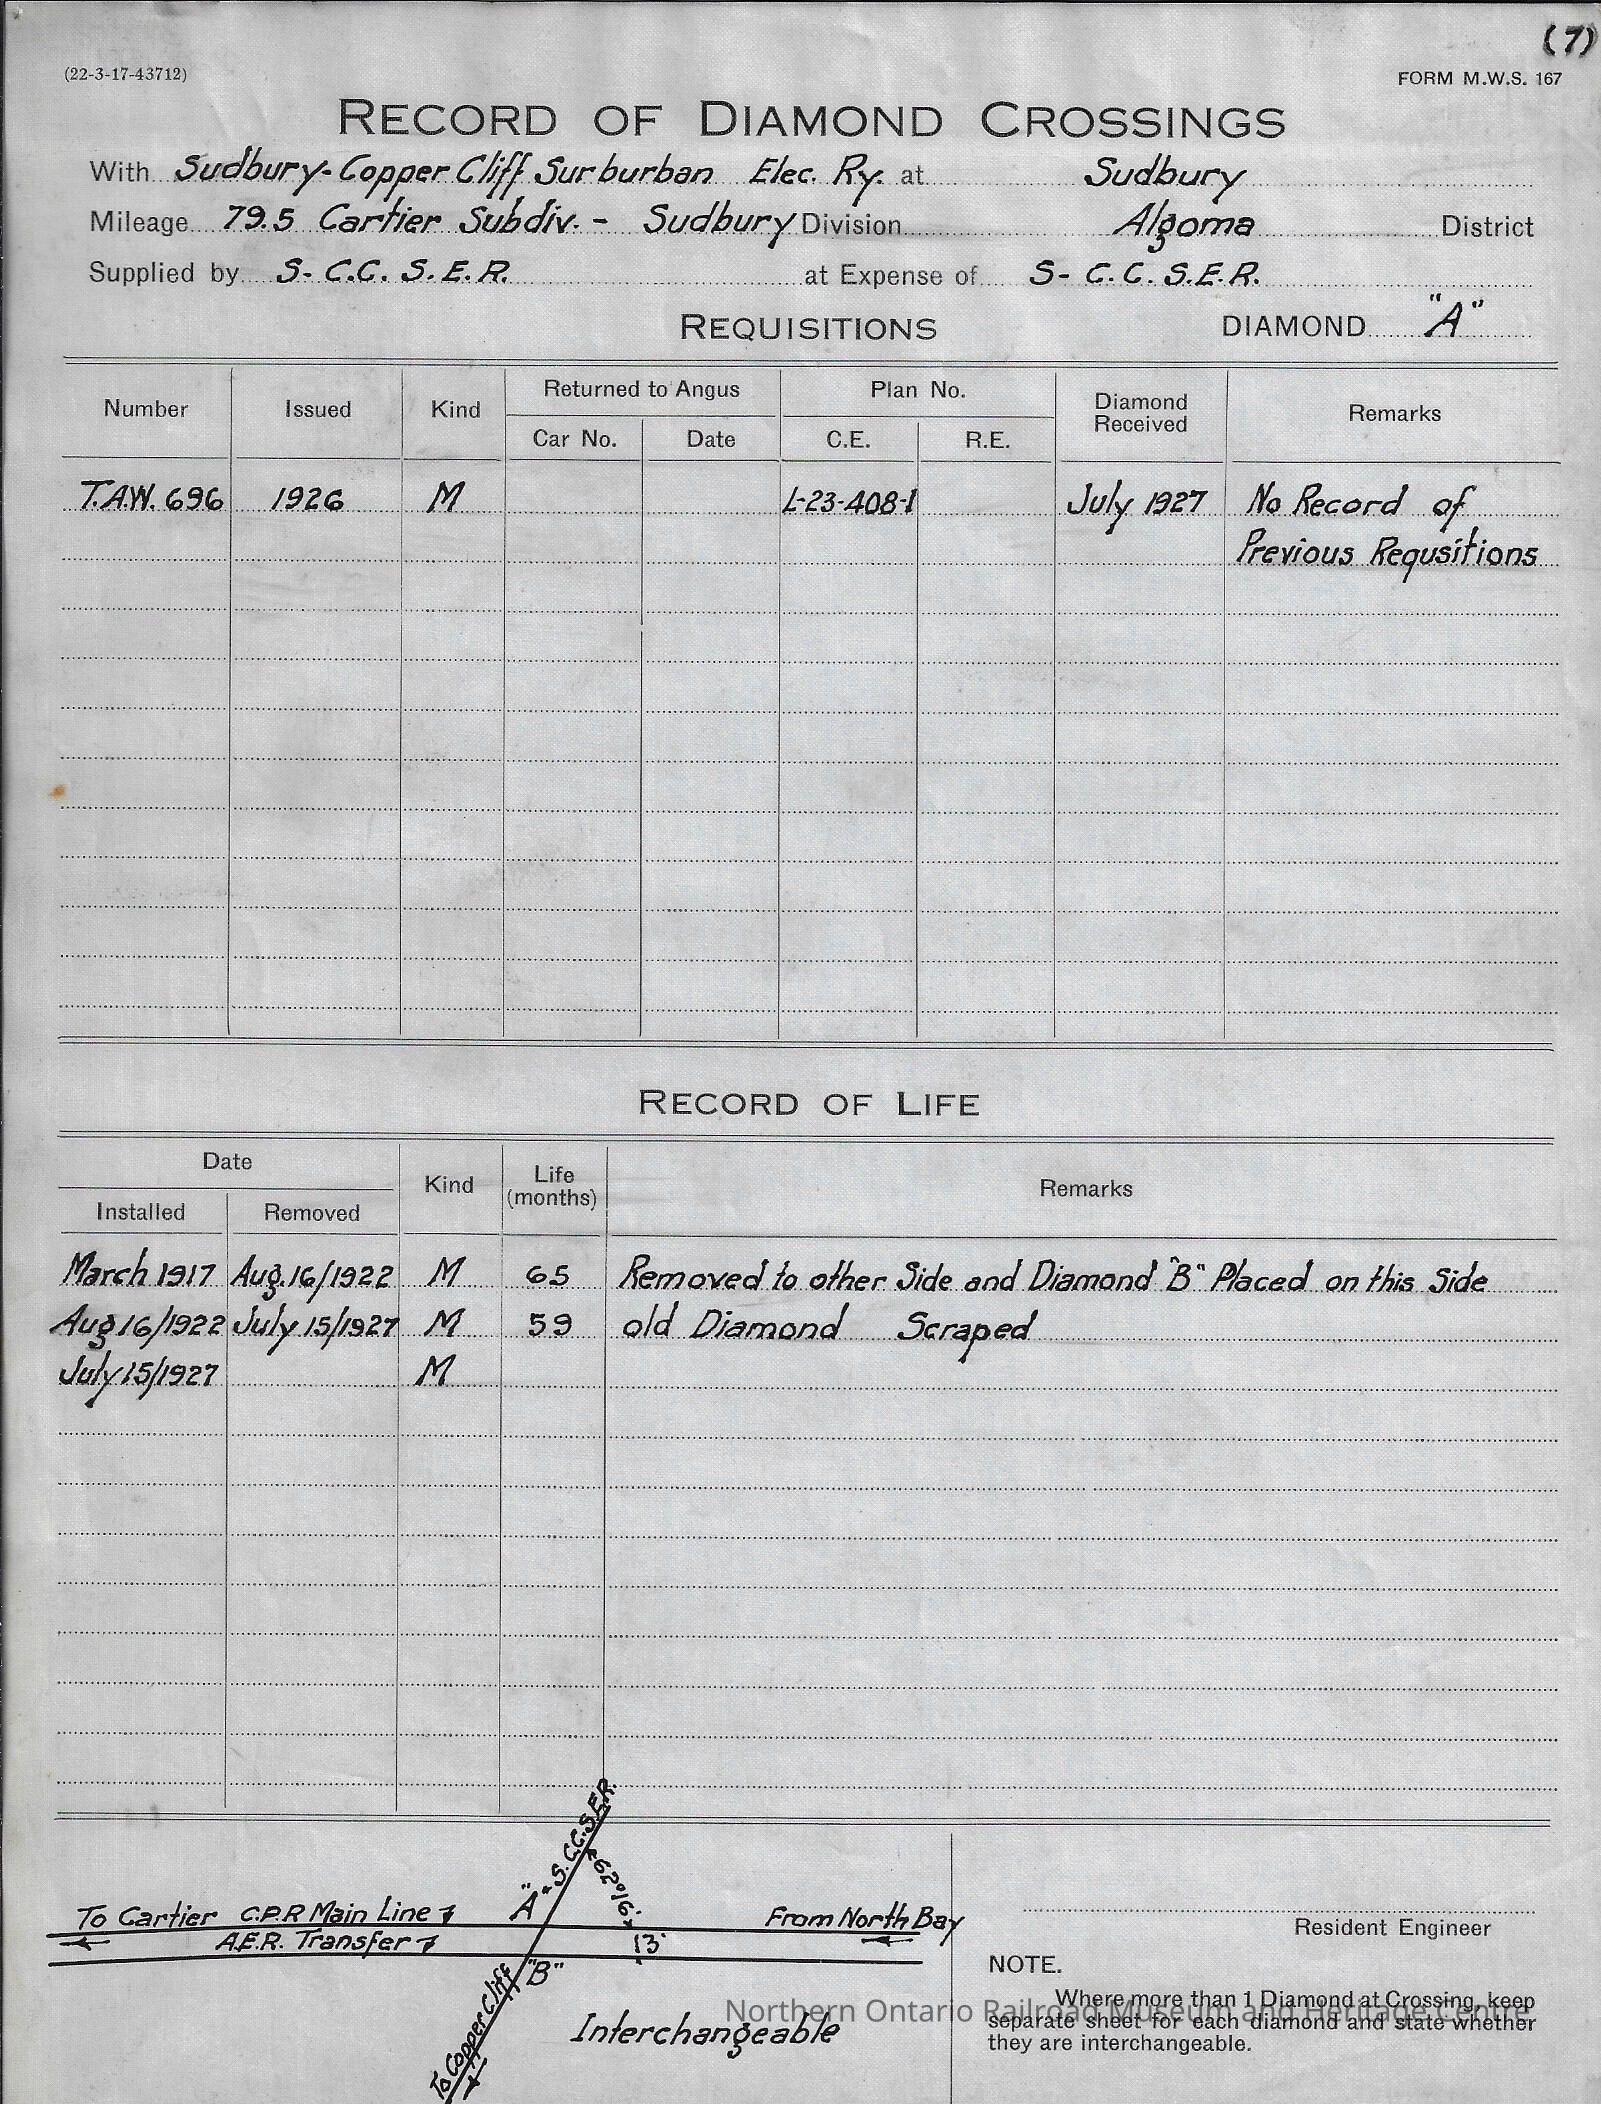 (7)
(22-3-17-43712)
FORM M.W.S. 167
RECORD OF DIAMOND CROSSINGS
With Sudbury-Copper Cliff Surburban Elec. Ry. at Sudbury
Mileage 79.5 Cartier Subdiv. - Sudbury Division Algoma District
Supplied by S- C.C. S.E.R. at Expense of S- C.C. S.E.R.
REQUISITIONS DIAMOND "A"
Number Issued Kind Returned to Angus Plan No. Diamond Received Remarks
Car No. Date C.E. R.E.
T.A.W. 696 1926 M L-23-408-1 July 1927 No Record of
Previous Requsitions
RECORD OF LIFE
Date Kind Life (months) Remarks
Installed Removed
March 1917 Aug.16/1922 M 65 Removed to other Side and Diamond "B" Placed on this Side
Aug 16/1922 July 15/1927 M 59 old Diamond Scraped
July 15/1927 M
S.C.C.S.E.R.
62°16'
"A"
To Cartier C.P.R Main Line From North Bay
A.E.R. Transfer 13'
"B"
To Copper Cliff
Interchangeable
Resident Engineer
NOTE.
Where more than 1 Diamond at Crossing, keep
separate sheet for each diamond and state whether
they are interchangeable.
Northern Ontario Railroad Museum and Heritage Centre